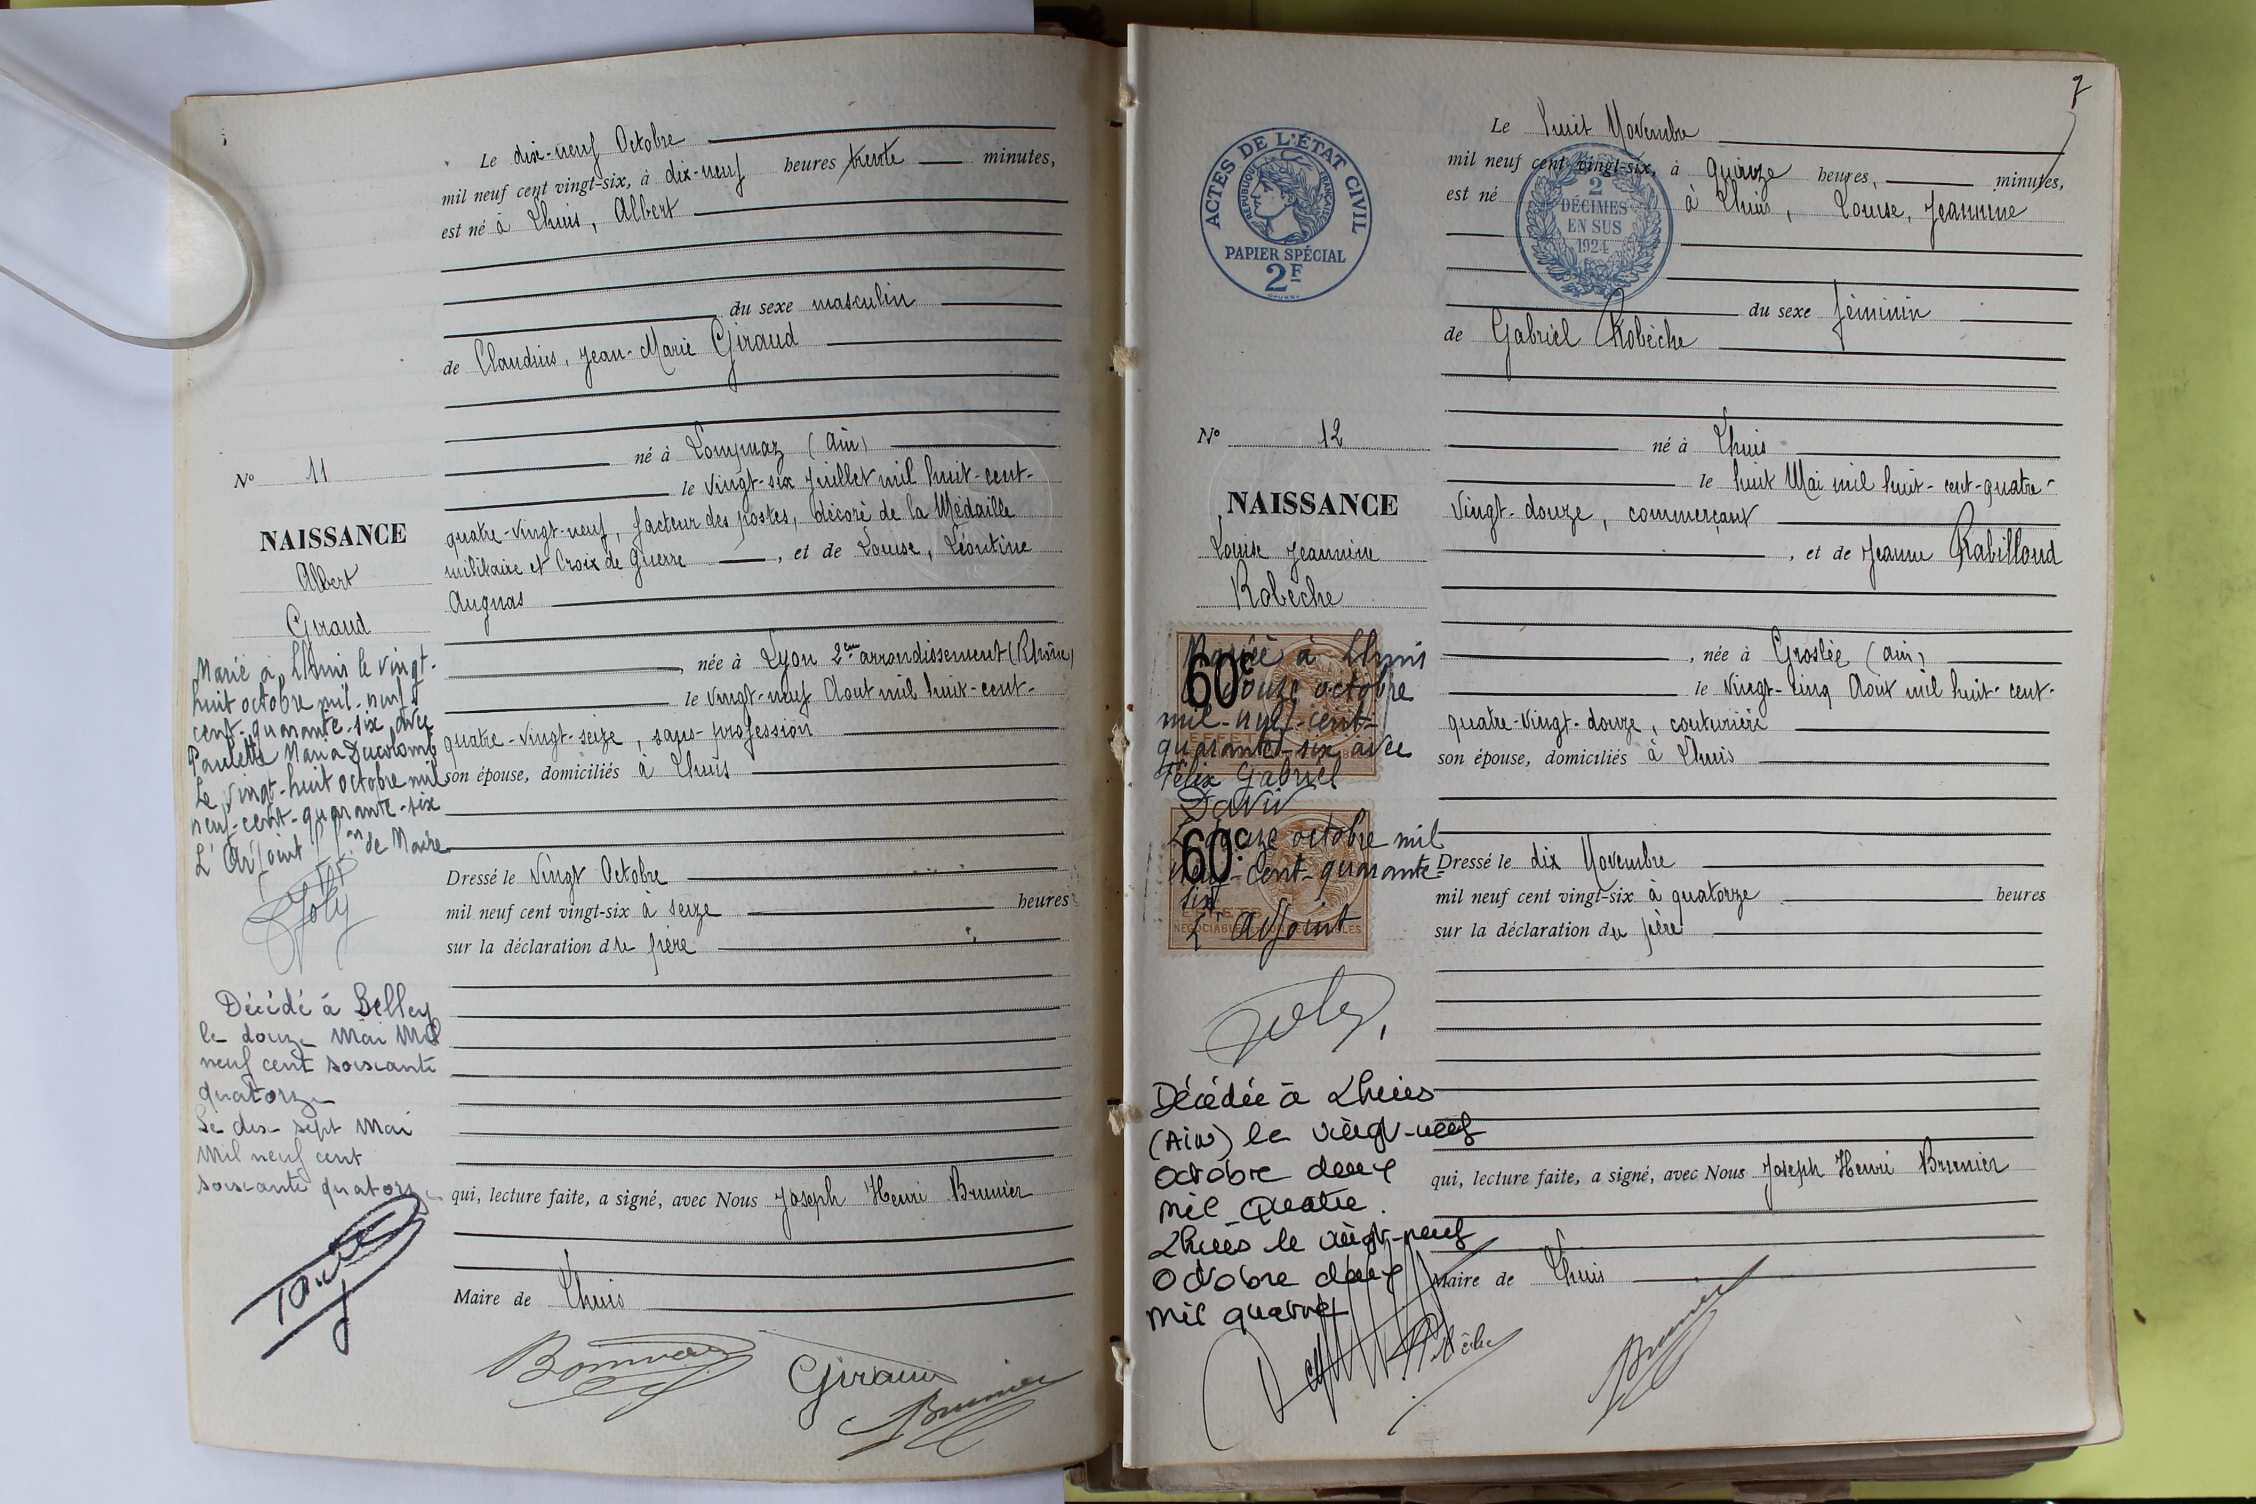 Le dix-neuf Octobre
mil neuf cent vingt-six, à dix-neuf heures trente minutes,
est né à Lhuis, Albert
du sexe masculin
de Claudius, Jean-Marie Giraud
né à Lompnaz (Ain)
le vingt-six Juillet mil huit-cent-
quatre-vingt-neuf, facteur des postes, décoré de la Médaille
militaire et Croix de Guerre, et de Louise, Léontine
Augnas
née à Lyon 2em arrondissement (Rhône)
le vingt-neuf Aout mil huit-cent-
quatre-vingt-seize, sans profession
son épouse, domiciliés à Lhuis
Dressé le vingt Octobre
mil neuf cent vingt-six à seize heures
sur la déclaration du père
qui, lecture faite, a signé, avec Nous Joseph Henri Brunier
Maire de Lhuis
Giraud
Brunier
No 11
NAISSANCE
Albert
Giraud
Marié à Lhuis le vingt-
huit octobre mil-neuf
cent-quarante-six avec
Paulette Maria Ducolomb
Le vingt-huit octobre mil
neuf-cent-quarante-six
L'Adjoint de Maire
Joly
Décédé à Belley
le douze Mai Mil
neuf cent soixante
quatorze
Le dix-sept Mai
Mil neuf cent
soixante quatorze
7
ACTES DE L'ÉTAT CIVIL
RÉPUBLIQUE FRANÇAISE
PAPIER SPÉCIAL
2F
2
DÉCIMES
EN SUS
1924
Le huit Novembre
mil neuf cent vingt-six, à quinze heures, minutes,
est né à Lhuis, Louise, Jeannine
du sexe féminin
de Gabriel Robèche
né à Lhuis
le huit Mai mil huit-cent-quatre-
vingt-douze, commerçant
, et de Jeanne Rabilloud
, née à Groslée (Ain)
le vingt-cinq Aout mil huit-cent-
quatre-vingt-douze, couturière
son épouse, domiciliés à Lhuis
Dressé le dix Novembre
mil neuf cent vingt-six à quatorze heures
sur la déclaration du père
qui, lecture faite, a signé, avec Nous Joseph Henri Brunier
Maire de Lhuis
Robèche
Brunier
No 12
NAISSANCE
Louise Jeannine
Robèche
60c
Mariée à Lhuis
douze octobre
mil-neuf-cent-
quarante-six avec
Félix Gabriel
60c
douze octobre mil
neuf-cent-quarante-
six
L'Adjoint
Joly
Décédée à Lhuis
(Ain) le vingt-neuf
octobre deux
mil quatre.
Lhuis le vingt-neuf
octobre deux
mil quatre